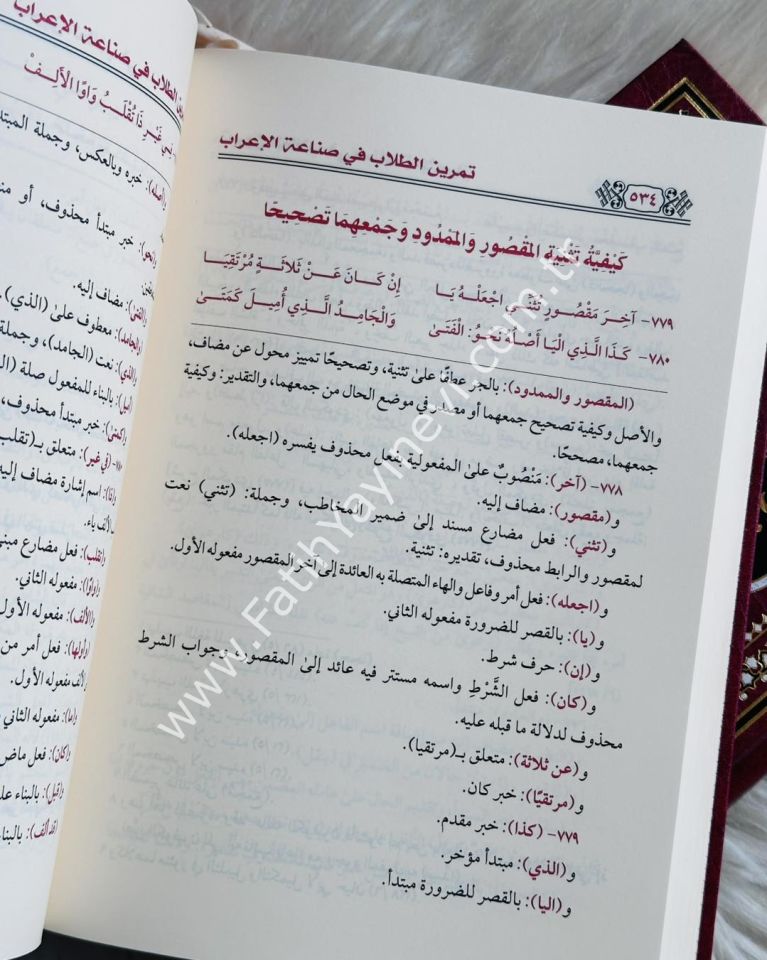 تمرين الطلاب في صناعة الإعراب
٥٣٤
كَيْفِيَّةُ تَثْنِيَةِ المَقْصُورِ وَالمَمْدُودِ وَجَمْعِهِمَا تَصْحِيحًا
٧٧٩- آخِرَ مَقْصُورٍ تُثَنِّي اجْعَلْهُ يَا إِنْ كَانَ عَنْ ثَلَاثَةٍ مُرْتَقِيَا
٧٨٠- كَذَا الَّذِي الْيَا أَصْلُهُ نَحْوُ: الْفَتَىٰ وَالْجَامِدُ الَّذِي أُمِيلَ كَمَتَىٰ
(المقصور والممدود): بالجر عطفًا علىٰ تثنية، وتصحيحًا تمييز محول عن مضاف،
والأصل وكيفية تصحيح جمعهما أو مصدر في موضع الحال من جمعهما، والتقدير: وكيفية
جمعهما، مصححًا.
٧٧٨- (آخر): مَنْصُوبٌ علىٰ المفعولية بفعل محذوف يفسره (اجعله).
و(مقصور): مضاف إليه.
و(تثني): فعل مضارع مسند إلىٰ ضمير المخاطب، وجملة: (تثني) نعت
لمقصور والرابط محذوف، تقديره: تثنية.
و(اجعله): فعل أمر وفاعل والهاء المتصلة به العائدة إلىٰ آخر المقصور مفعوله الأول.
و(يا): بالقصر للضرورة مفعوله الثاني.
و(إن): حرف شرط.
و(كان): فعل الشَّرْطِ واسمه مستتر فيه عائد إلىٰ المقصور، وجواب الشرط
محذوف لدلالة ما قبله عليه.
و(عن ثلاثة): متعلق بـ(مرتقيا).
و(مرتقيًا): خبر كان.
٧٧٩- (كذا): خبر مقدم.
و(الذي): مبتدأ مؤخر.
و(اليا): بالقصر للضرورة مبتدأ.
تمرين الطلاب في صناعة الإعراب
غَيْرِ ذَا تُقْلَبُ وَاوًا الأَلِفْ
خبره وبالعكس، وجملة المبتد
خبر مبتدأ محذوف، أو من
مضاف إليه.
معطوف علىٰ (الذي).
نعت (الجامد)، وجملة
بالبناء للمفعول صلة (ال
خبر مبتدأ محذوف،
(في غير): متعلق بـ(تقلب
اسم إشارة مضاف إليه
فعل مضارع مبني
مفعوله الثاني.
مفعوله الأول
فعل أمر من
مفعوله الأول.
مفعوله الثاني
فعل ماض
بالبناء عل
بالبناء
www.FatihYayinevi.com.tr